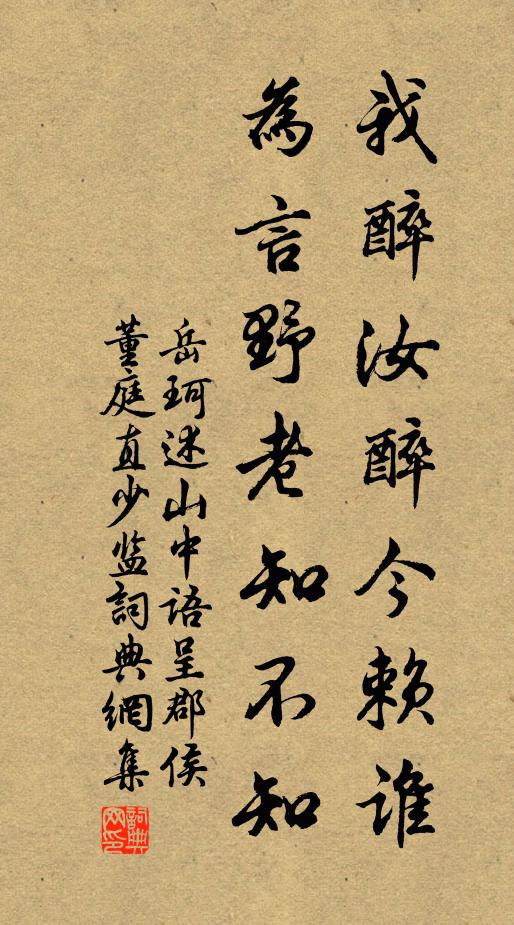 我醉汝醉今賴誰
為言野老知不知
岳珂述山中語呈郡侯
董庭直少监詞典網集
詞典網印